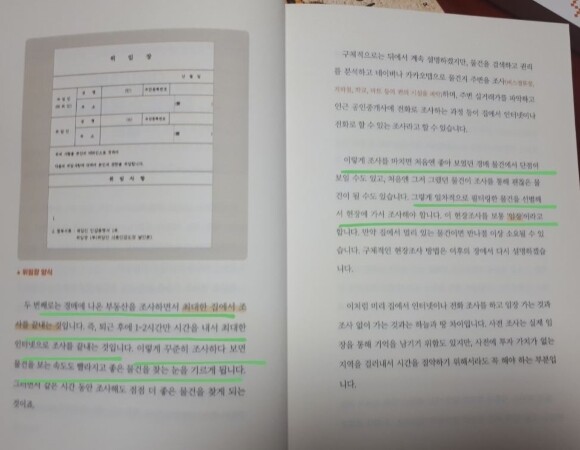 위 임 장
성 명
주 소
성 명
주 소
위 임 사 항
▲ 위임장 양식
두 번째로는 경매에 나온 부동산을 조사하면서 최대한 집에서 조
사를 끝내는 것입니다. 즉, 퇴근 후에 1~2시간만 시간을 내서 최대한
인터넷으로 조사를 끝내는 것입니다. 이렇게 꾸준히 조사하다 보면
물건을 보는 속도도 빨라지고 좋은 물건을 찾는 눈을 기르게 됩니다.
그러면서 같은 시간 동안 조사해도 점점 더 좋은 물건을 찾게 되는
것이죠.
구체적으로는 뒤에서 계속 설명하겠지만, 물건을 검색하고 권리
를 분석하고 네이버나 카카오맵으로 물건지 주변을 조사(버스정류장,
지하철, 학교, 마트 등의 편의 시설을 파악)하며, 주변 실거래가를 파악하고
인근 공인중개사에 전화로 조사하는 과정 등이 집에서 인터넷이나
전화로 할 수 있는 조사라고 할 수 있습니다.
이렇게 조사를 마치면 처음엔 좋아 보였던 경매 물건에서 단점이
보일 수도 있고, 처음엔 그저 그랬던 물건이 조사를 통해 괜찮은 물
건이 될 수도 있습니다. 그렇게 일차적으로 필터링한 물건을 선별해
서 현장에 가서 조사해야 합니다. 이 현장조사를 보통 '임장'이라고
합니다. 만약 집에서 멀리 있는 물건이면 반나절 이상 소요될 수 있
습니다. 구체적인 현장조사 방법은 이후의 장에서 다시 설명하겠습
니다.
이처럼 미리 집에서 인터넷이나 전화 조사를 하고 임장 가는 것과
조사 없이 가는 것과는 하늘과 땅 차이입니다. 사전 조사는 실제 임
장을 통해 기억을 남기기 위함도 있지만, 사전에 투자 가치가 없는
지역을 걸러내서 시간을 절약하기 위해서라도 꼭 해야 하는 부분입
니다.